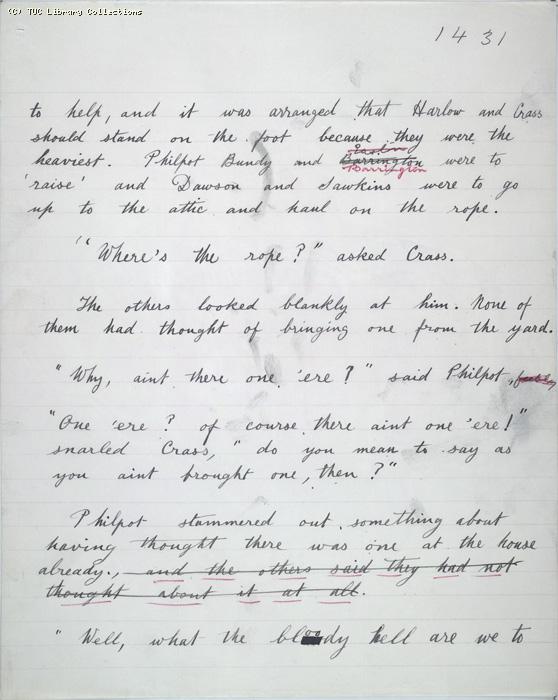 (C) TUC Library Collections
1431
to help, and it was arranged that Harlow and Crass
should stand on the foot because they were the
heaviest. Philpot Bundy and Barrington were to
Barrington
'raise' and Dawson and Sawkins were to go
up to the attic and haul on the rope.
"Where's the rope?" asked Crass.
The others looked blankly at him. None of
them had thought of bringing one from the yard.
"Why, aint there one 'ere?" said Philpot,
"One 'ere? of course there aint one 'ere!"
snarled Crass, "do you mean to say as
you aint brought one, then?"
Philpot stammered out something about
having thought there was one at the house
already., and the others said they had not
thought about it at all.
"Well, what the bloody hell are we to